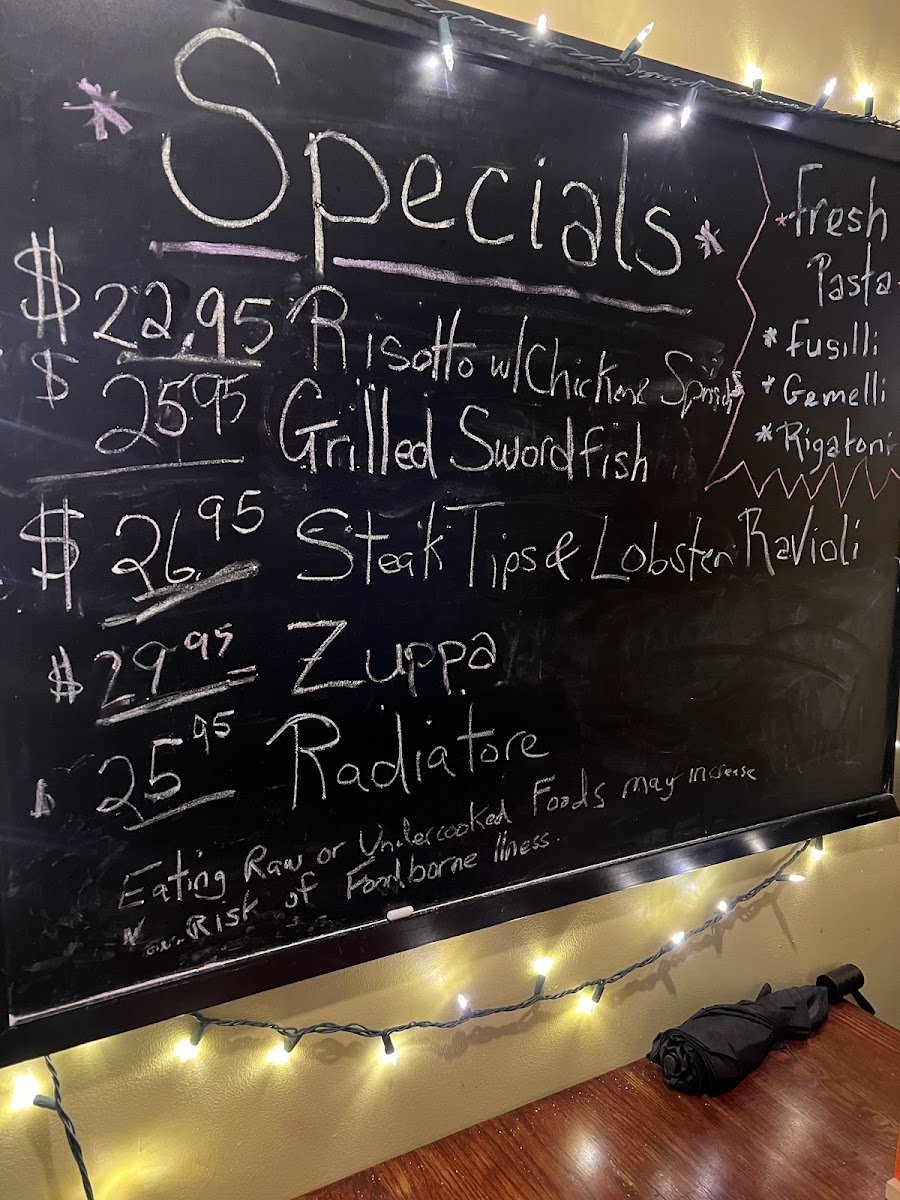 * Specials *
$ 22.95 Risotto w/ Chicken
$ 25 95 Grilled Swordfish
$ 26.95 Steak Tips & Lobster Ravioli
$ 29 95 Zuppa
$ 25 95 Radiatore
Eating Raw or Undercooked Foods may increase
Risk of Foodborne Illness.
* Fresh
Pasta
* Fusilli
* Gemelli
* Rigatoni